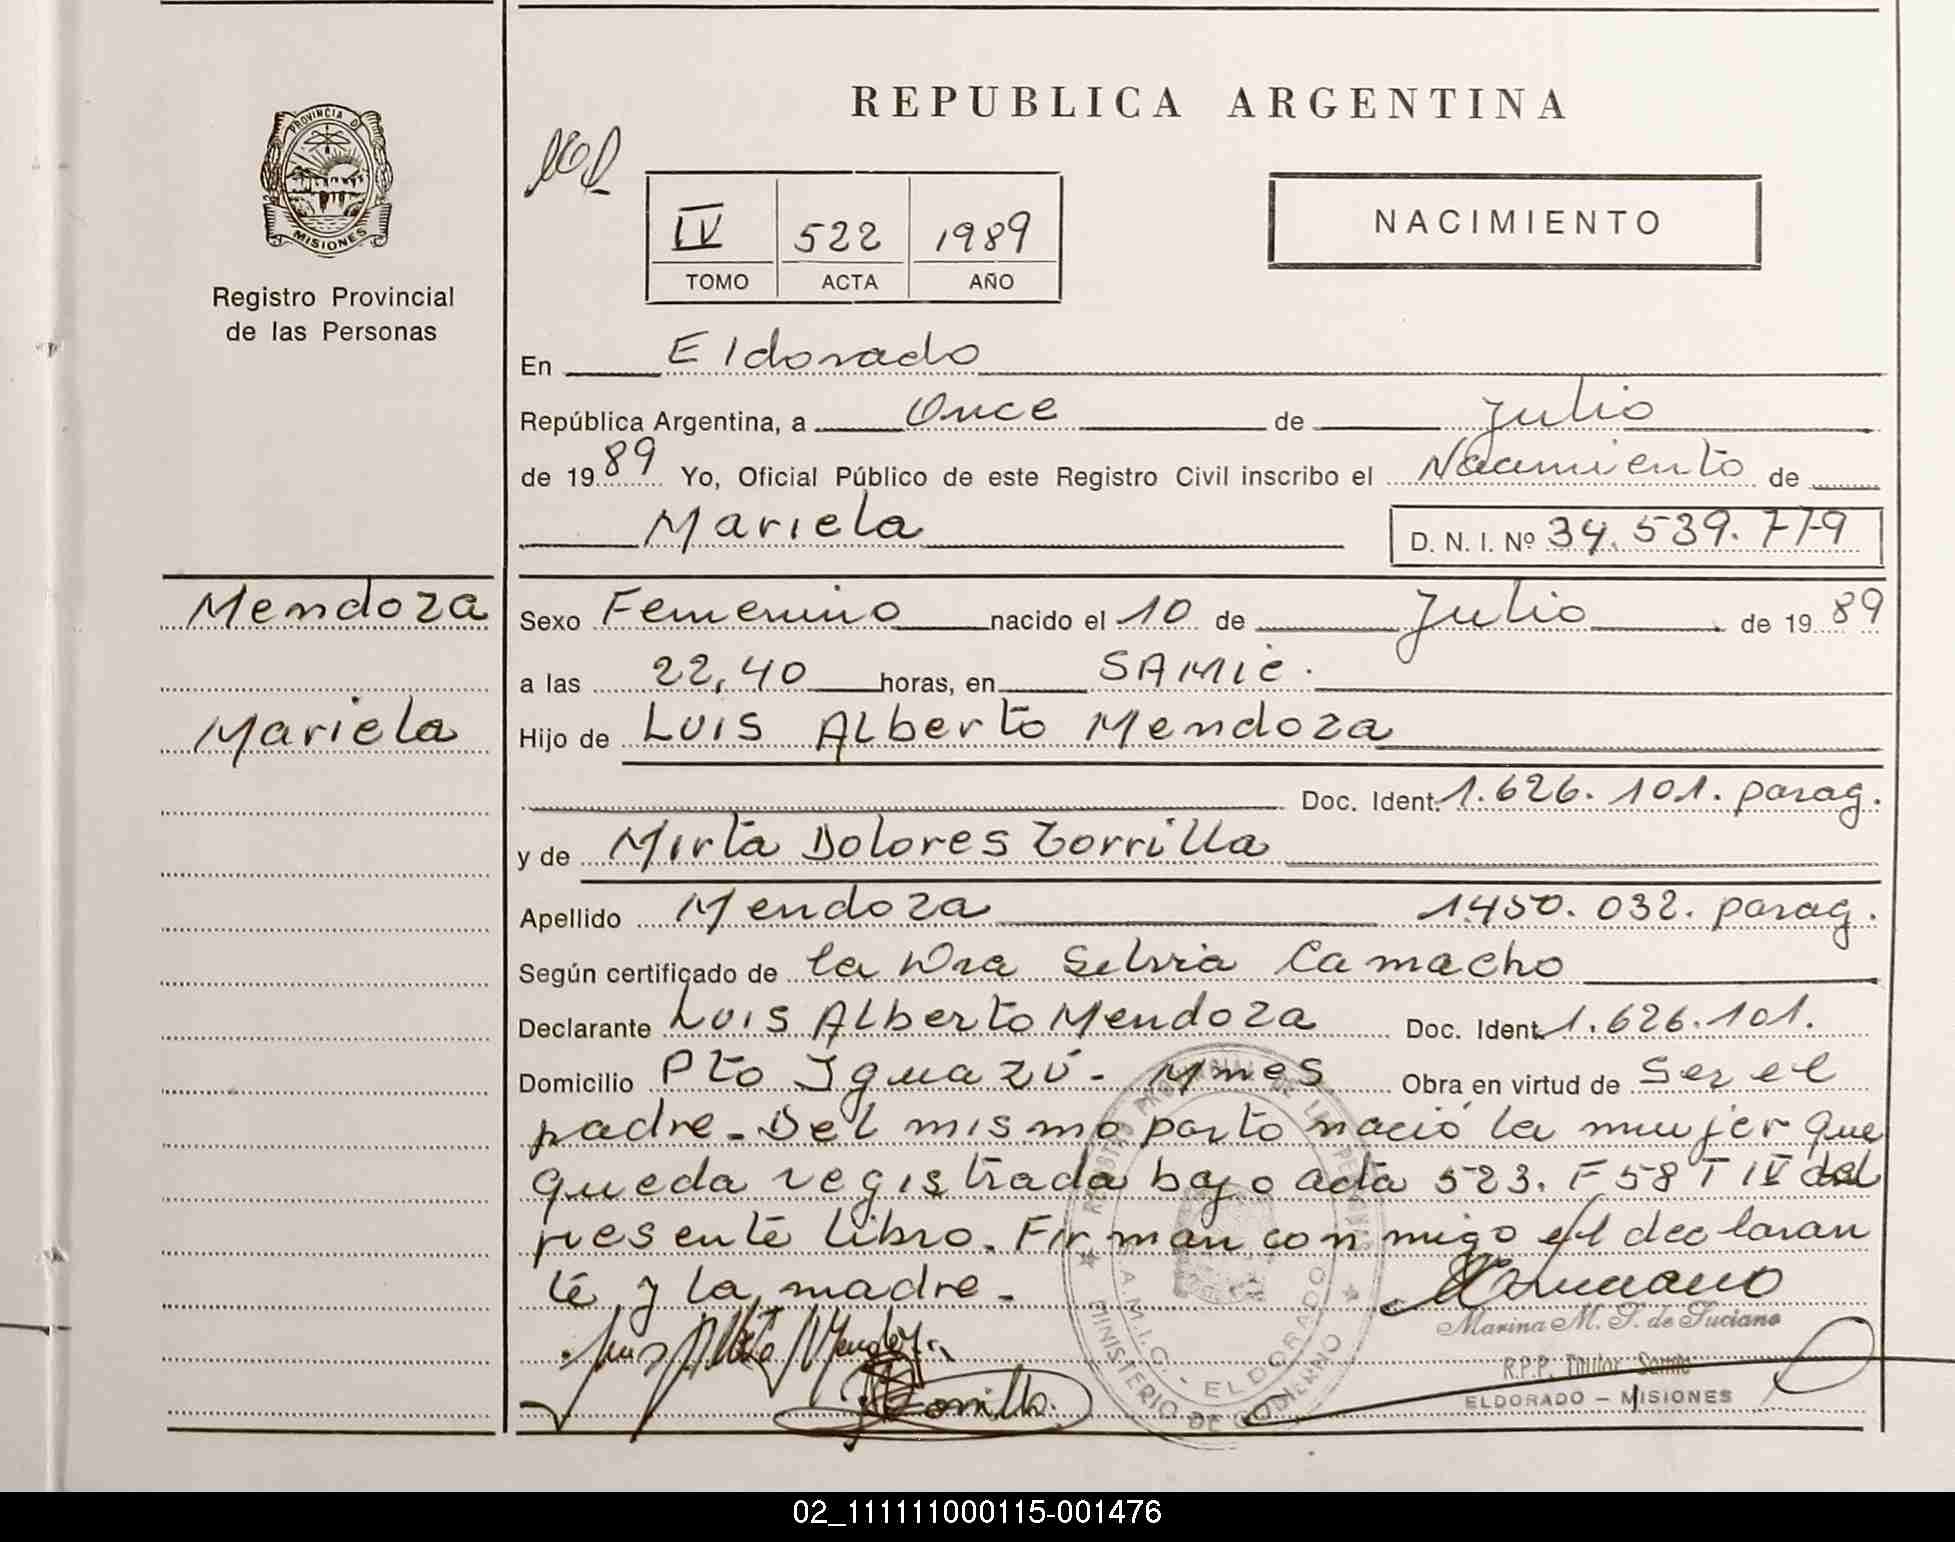 REPUBLICA ARGENTINA
PROVINCIA DE
MISIONES
Registro Provincial
de las Personas
IV 522 1989
TOMO ACTA AÑO
NACIMIENTO
En Eldorado
República Argentina, a Once de Julio
de 1989 Yo, Oficial Público de este Registro Civil inscribo el Nacimiento de
Mariela D. N. I. Nº 34.539.779
Mendoza
Mariela
Sexo Femenino nacido el 10 de Julio de 1989
a las 22,40 horas, en SAMIC.
Hijo de Luis Alberto Mendoza
Doc. Ident. 1.626.101. parag.
y de Mirta Dolores Torrilla
Apellido Mendoza 1450.032. parag.
Según certificado de la Dra Selvia Camacho
Declarante Luis Alberto Mendoza Doc. Ident. 1.626.101.
Domicilio Pto Iguazú - Mnes Obra en virtud de Ser el
padre - Del mismo parto nació la mujer que
queda registrada bajo acta 523. F 58 T IV del
presente libro. Firman conmigo el declaran
te y la madre -
Marina M. T. de Luciano
R.P.P. Titular
ELDORADO - MISIONES
S.A.M.I.C. - ELDORADO
MINISTERIO DE GOBIERNO
02_111111000115-001476